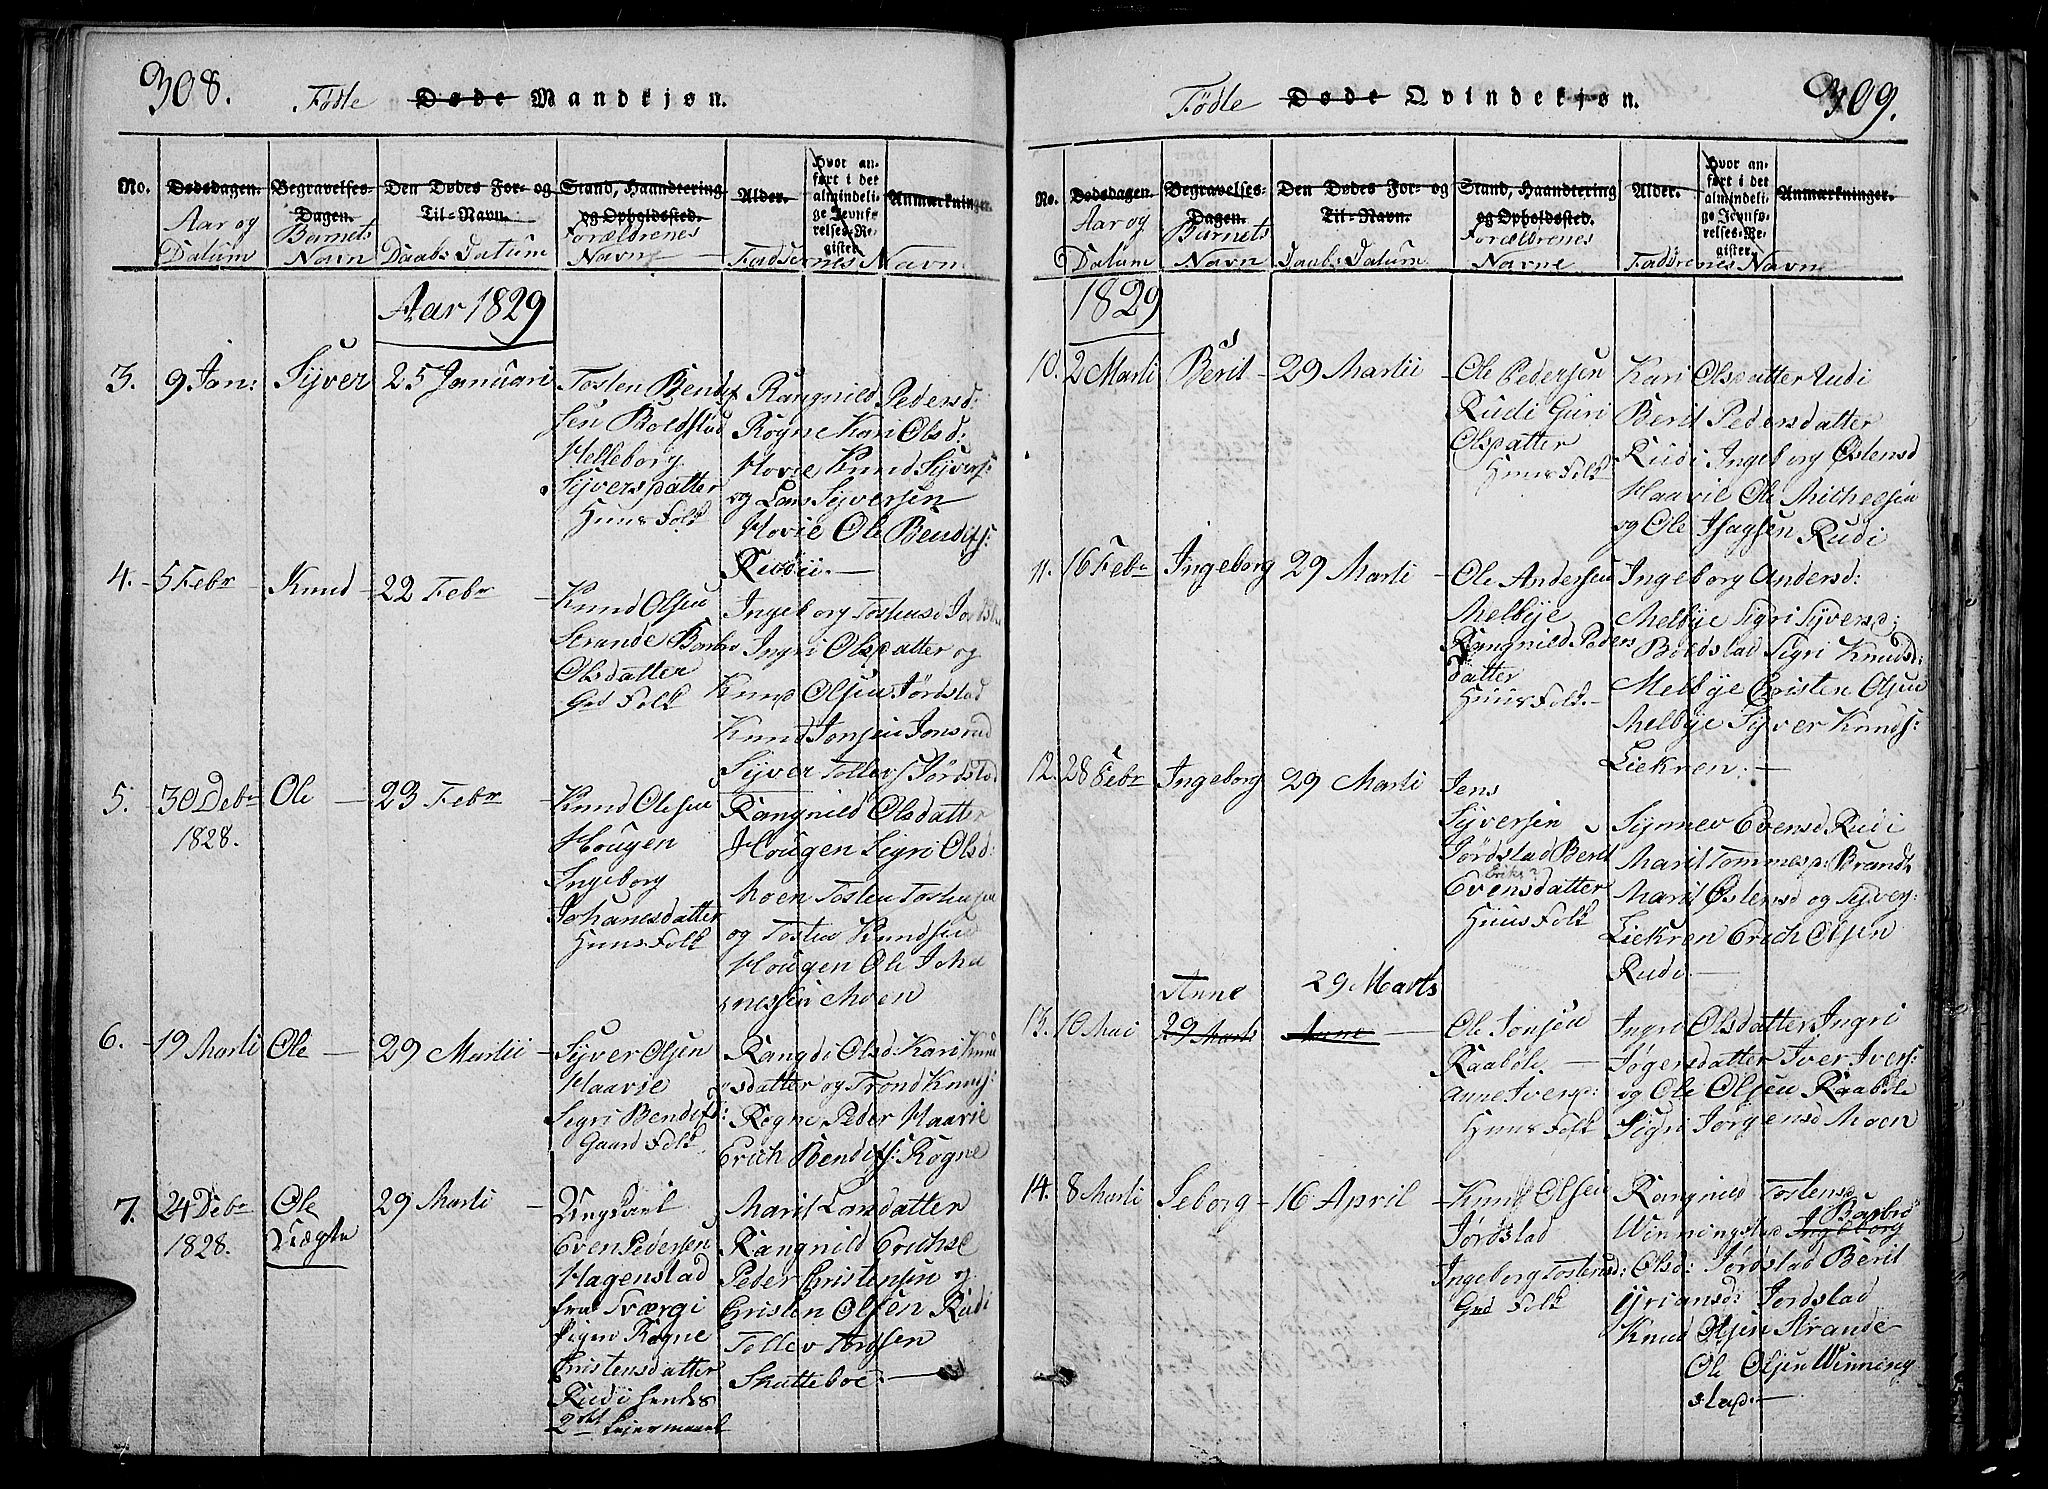 308.
Fødte Døde Mandkjøn.
No.
Dødsdagen.
Aar og
Datum
Begravelses-
Dagen.
Barnets
Navn
Den Dødes For- og
Til-Navn.
Daabs Datum
Stand, Haandtering
og Opholdssted.
Forældrenes
Navne
Alder.
Hvor an-
ført i det
almindeli-
ge Jevnfø-
relses-Re-
gister.
Anmærkninger.
Faddernes Navne
Aar 1829
3. 9 Jan: Syver 25 Januari
Tosten Bendix
sen Boldstad
Helleborg
Syversdatter
Huus Folk
Rangnild Pedersd:
Rogne Kari Olsd:
Hovie Knud Syvers:
og Lars Syversen
Hovie Ole Bendixs:
Rudii.
4. 5 Febr Knud 22 Febr
Knud Olsen
Strande Barbro
Olsdatter
Grd Folk
Ingeborg Tostensd
Ingri Olsdatter og
Knud Olsen Jørdstad
Knud Jonsen
Syver Tollefs Jørdstad
5. 30 Debr Ole 23 Febr
1828.
Knud Olesen
Hougen
Ingeborg
Johanesdatter
Huus Folk
Rangnild Olsdatter
Hougen Sigri Olsd:
Moen Tosten Tostensen
og Tosten Knudsen
Hougen Ole Joha
nessen Moen
6. 19 Marti Ole 29 Martii
Syver Olsen
Haavie
Sigri Bendixs:
Gaard Folk
Rangdi Olsd: Kari Knud
sdatter og Trond Knuds:
Rogne Peder Haavie
Erich Bendixs: Rogne
7. 24 Debr Ole 29 Marti
1828. Uægte
Ungkarl
Even Pedersen
Hagenstad
fra Sværgi
Pigen Rogne
Cristensdatter
Rudi hendes
2det Leiermaal
Marit Larsdatter
Rangnild Erichsd
Peder Cristensen og
Cristen Olsen Rudi
Tollev Arnsen
Skatteboe.
309.
Fødte Døde Qvindekjøn.
No.
Dødsdagen.
Aar og
Datum
Begravelses-
Dagen.
Barnets
Navn
Den Dødes For- og
Til-Navn.
Daabs Datum
Stand, Haandtering
og Opholdssted.
Forældrenes
Navne
Alder.
Hvor an-
ført i det
almindeli-
ge Jevnfø-
relses-Re-
gister.
Anmærkninger.
Faddrenes Navne
1829
10. 2 Marti Berit 29 Martii
Ole Pedersen
Rudi Guri
Olsdatter
Huus Folk
Kari Olsdatter Rudi
Berit Pedersdatter
Rudi Ingeborg Østensd
Haavie Ole Michelsen
og Ole Isaksen Rudi
11. 16 Febr Ingeborg 29 Marti
Ole Andersen
Melbye
Rangnild Peders
datter
Huus Folk.
Ingeborg Andersd:
Melbye Sigri Syversd:
Boldstad Sigri Knudsd:
Melbye Cristen Olsen
Melbye Syver Knuds:
Liekren.
12. 28 Febr Ingeborg 29 Marti
Jens
Syversen
Jørdstad Berit
Eriks?
Evensdatter
Huus Folk
Synnev Evensd Rudi
Marit Tommesd: Brandt
Marit Østensd og Syver
Liekren Erich Olsen
Rudi
Anne 29 Marts
13. 10 Mai 29 Marts Anne
Ole Jonsen
Raabøle
Anne Iversd:
Huus Folk
Ingri Olsdatter Ingri
Jøgersdatter Iver Ivers:
og Ole Olsen Raabøle
Sigri Jørgensd Moen
14. 8 Marti Seborg 16 April
Knud Olsen
Jørdstad
Ingeborg Tostensd:
Grd Folk
Rangnild Tostensd
Barbro
Winningstad Ingeborg
Olsd: Jørdstad Berit
Jordstad
Knud Olsen Strande
Ole Olsen Winning
stad.